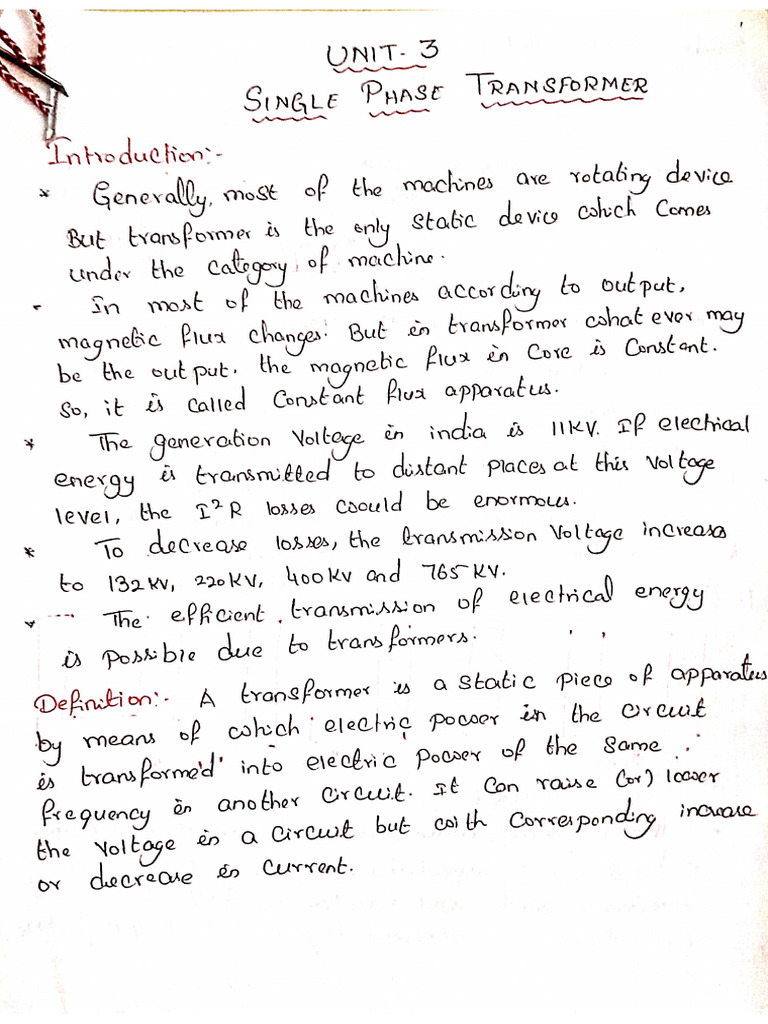 UNIT-3
SINGLE PHASE TRANSFORMER
Introduction:-
* Generally, most of the machines are rotating device
But transformer is the only static device which comes
under the category of machine.
- In most of the machines according to output,
magnetic flux changes. But in transformer what ever may
be the output. the magnetic flux in core is constant.
So, it is called constant flux apparatus.
* The generation voltage in india is 11KV. If electrical
energy is transmitted to distant places at this voltage
level, the I²R losses would be enormous.
* To decrease losses, the transmission voltage increases
to 132KV, 220KV, 400KV and 765KV.
* The efficient transmission of electrical energy
is possible due to transformers.
Definition:- A transformer is a static piece of apparatus
by means of which electric power in the circuit
is transformed into electric power of the same
frequency in another circuit. It can raise (or) lower
the voltage in a circuit but with corresponding increase
or decrease in current.